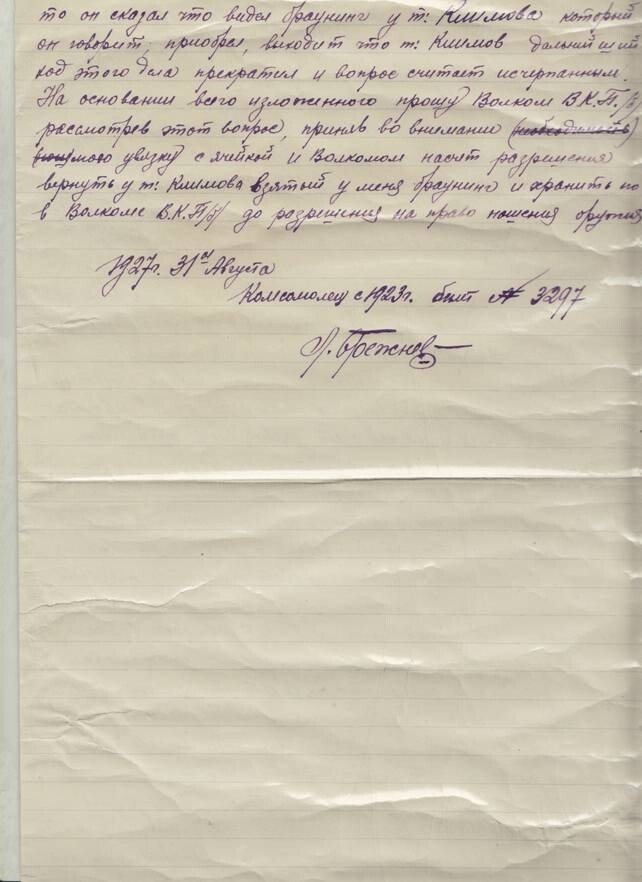 то он сказал что видел браунинг у т. Климова который
он говорит, приобрел, выходит что т. Климов дальнейший
ход этого дела прекратил и вопрос считает исчерпанным.
На основании всего изложенного прошу Волком В.К.П./б/
рассмотрев этот вопрос, приняв во внимание (необходимость)
мою увязку с ячейкой и Волкомом насчет разрешения
вернуть у т. Климова взятый у меня браунинг и хранить
в Волкоме В.К.П/б/ до разрешения на право ношения оружия
1927г. 31го Августа
Комсомолец с 1923г. билет № 3297
Л. Брежнев